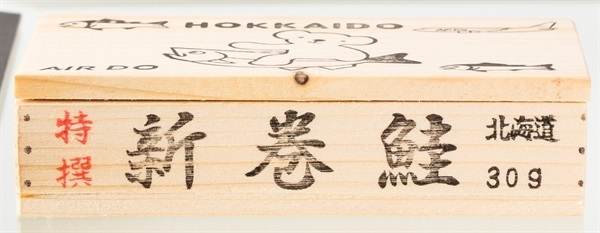 HOKKAIDO
AIR DO
特撰
新巻鮭
北海道
30g